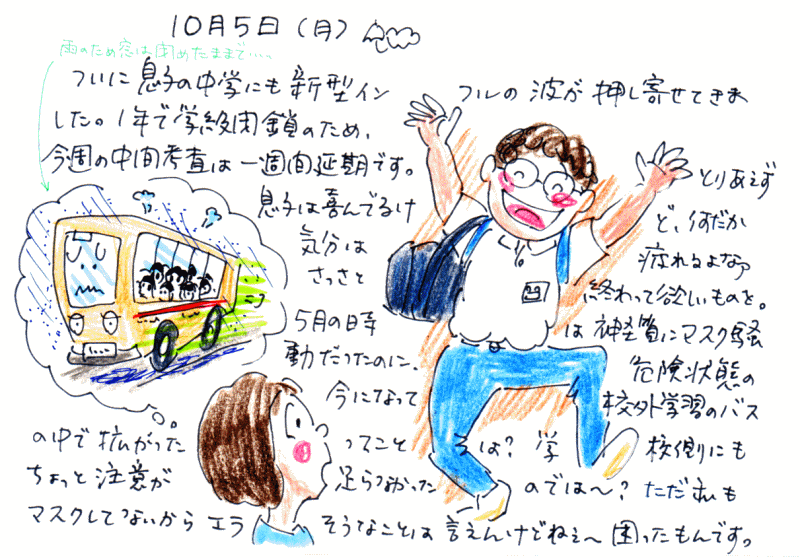 10月5日（月）
雨のため窓は閉めたままで…。
ついに息子の中学にも新型インフルの波が押し寄せてきま
した。1年で学級閉鎖のため、
今週の中間考査は一週間延期です。とりあえず
息子は喜んでるけど、何だか
気分は疲れるよなァ
さっさと終わって欲しいものを。
5月の時は神経質にマスク騒
動だったのに、危険状態の
今になって校外学習のバス
の中で拡がったってことは？学校側にも
ちょっと注意が足らなかったのでは〜？ただ私も
マスクしてないからエラそうなことは言えんけどねぇ〜困ったもんです。